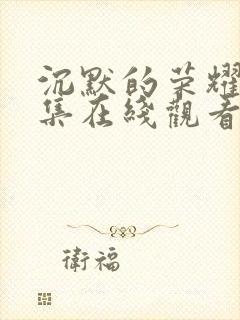 沉默的荣耀
集在綫觀看
衛福